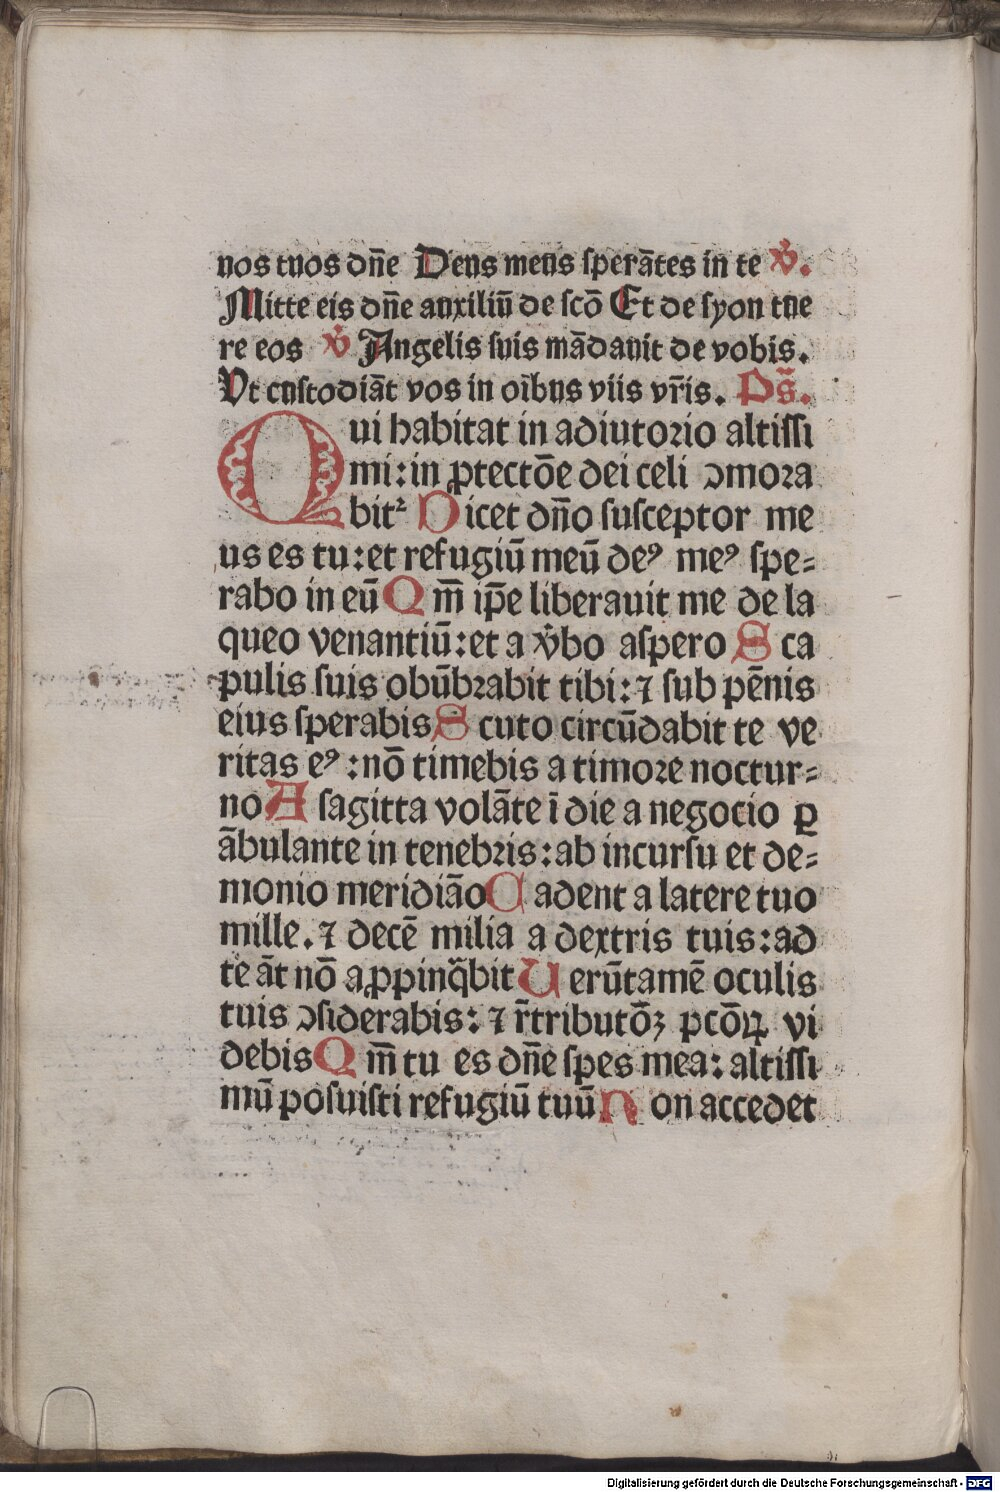 uos tuos dn̄e Deus meus ſperātes in te v̓.
Mitte eis dn̄e auxiliū de ſcō Et de ſyon tue
re eos v̓ Angelis ſuis mādauit de vobis.
Vt cuſtodiāt vos in oībus viis vr̄is. Ps̄.
Qui habitat in adiutorio altiſſi
mi: in ꝓtectōe dei celi ↄmora
bitꝛ Dicet dn̄o ſuſceptor me
us es tu: et refugiū meū deꝰ meꝰ ſpe⸗
rabo in eū Qm̄ ip̄e liberauit me de la
queo venantiū: et a v̓bo aſpero Sca
pulis ſuis obūbꝛabit tibi: ⁊ ſub pēnis
eius ſperabis Scuto circūdabit te ve
ritas eꝰ: nō timebis a timoꝛe noctur⸗
no A ſagitta volāte ī die a negocio ꝑ
ābulante in tenebꝛis: ab incurſu et de⸗
monio meridiāo Cadent a latere tuo
mille. ⁊ decē milia a dextris tuis: ad
te āt nō aꝓpinq̄bit Uerūtamē oculis
tuis ↄſiderabis: ⁊ r̄tributōꝫ pcōꝝ vi
debis Qm̄ tu es dn̄e ſpes mea: altiſſi
mū poſuiſti refugiū tuū Non accedet
Digitalisierung gefördert durch die Deutsche Forschungsgemeinschaft - DFG